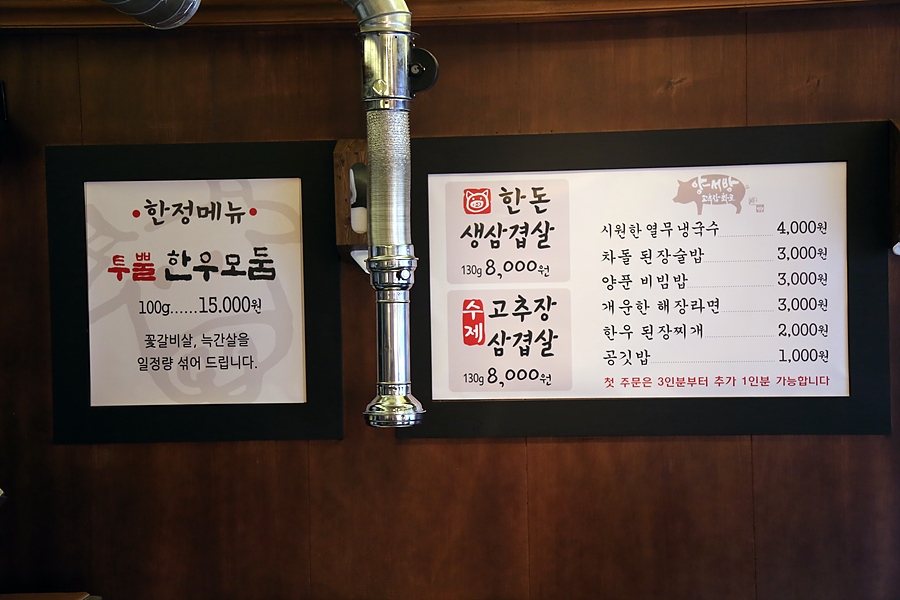 •한정메뉴•
투뿔 한우모둠
100g......15.000원
꽃갈비살, 늑간살을
일정량 섞어 드립니다.
한돈
생삼겹살
130g 8,000원
수제 고추장
삼겹살
130g 8,000원
양서방
시원한 열무냉국수 4,000원
차돌 된장술밥 3,000원
양푼 비빔밥 3,000원
개운한 해장라면 3,000원
한우 된장찌개 2,000원
공깃밥 1,000원
첫 주문은 3인분부터 추가 1인분 가능합니다